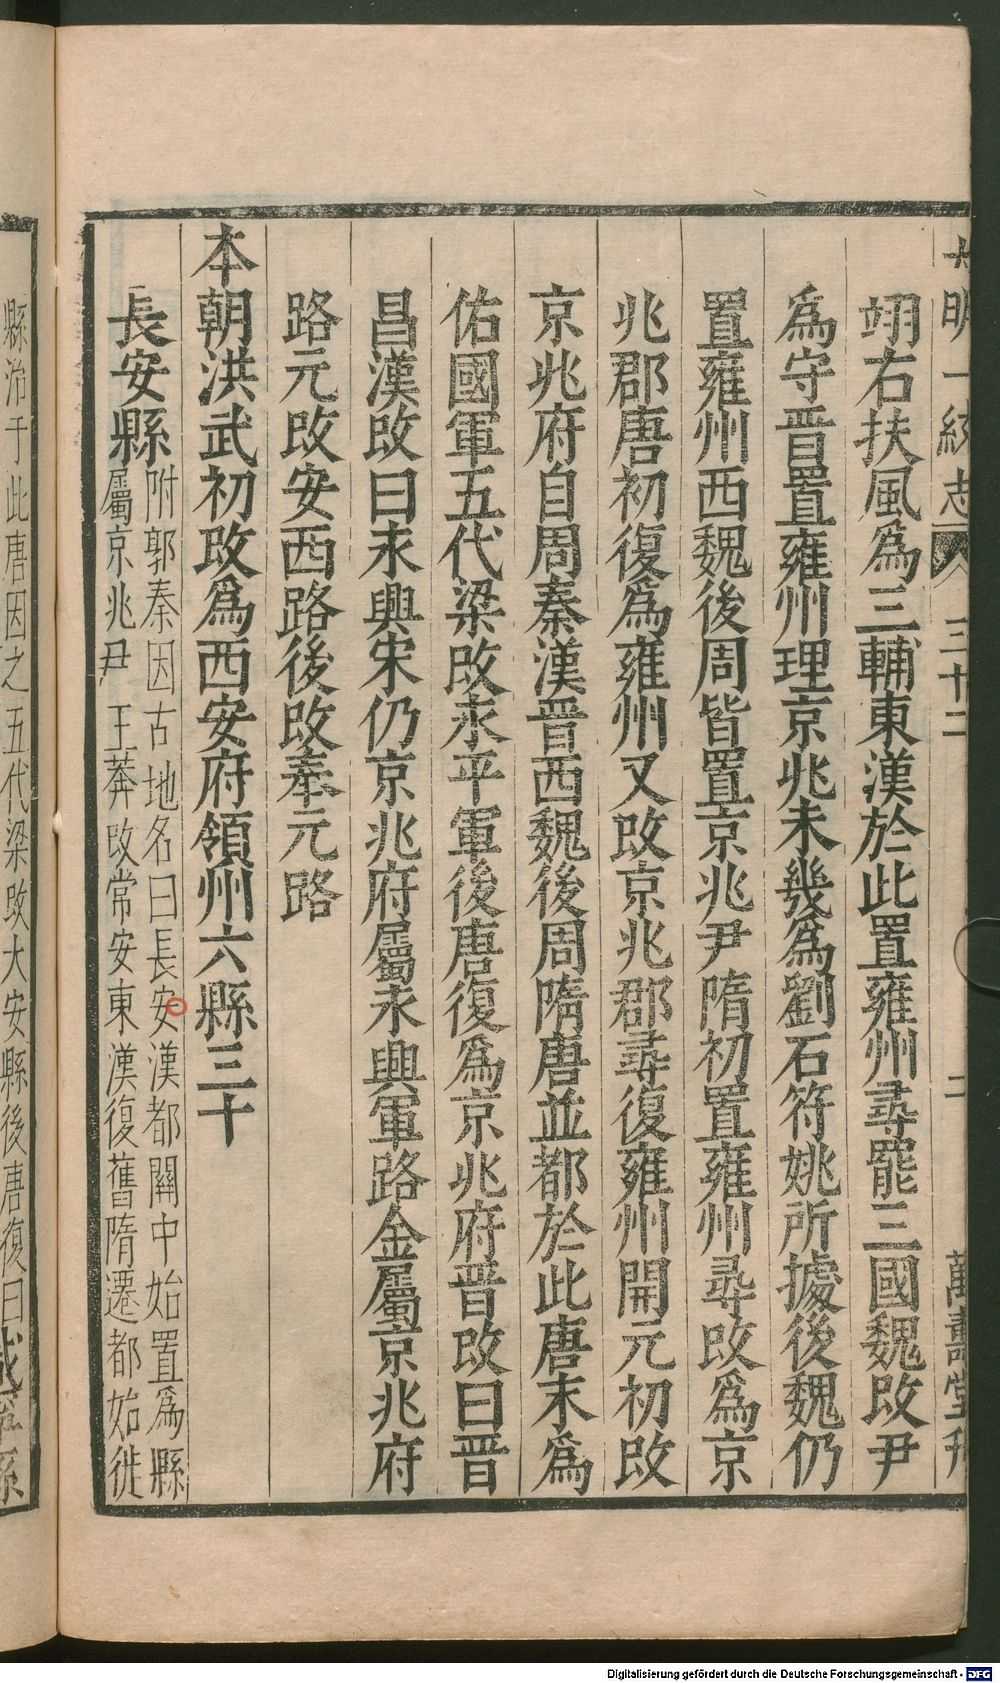 大明一統志 三十二 二 萬壽堂刊
翊右扶風為三輔東漢於此置雍州尋罷三國魏改尹
為守晉置雍州理京兆未幾為劉石符姚所據後魏仍
置雍州西魏後周皆置京兆尹隋初置雍州尋改為京
兆郡唐初復為雍州又改京兆郡尋復雍州開元初改
京兆府自周秦漢晉西魏後周隋唐並都於此唐末為
佑國軍五代梁改永平軍後唐復為京兆府晉改曰晉
昌漢改曰永興宋仍京兆府屬永興軍路金屬京兆府
路元改安西路後改奉元路
本朝洪武初改為西安府領州六縣三十
長安縣
附郭秦因古地名曰長安漢都關中始置為縣
屬京兆尹王莽改常安東漢復舊隋遷都始徙
縣治于此唐因之五代梁改大安縣後唐復曰